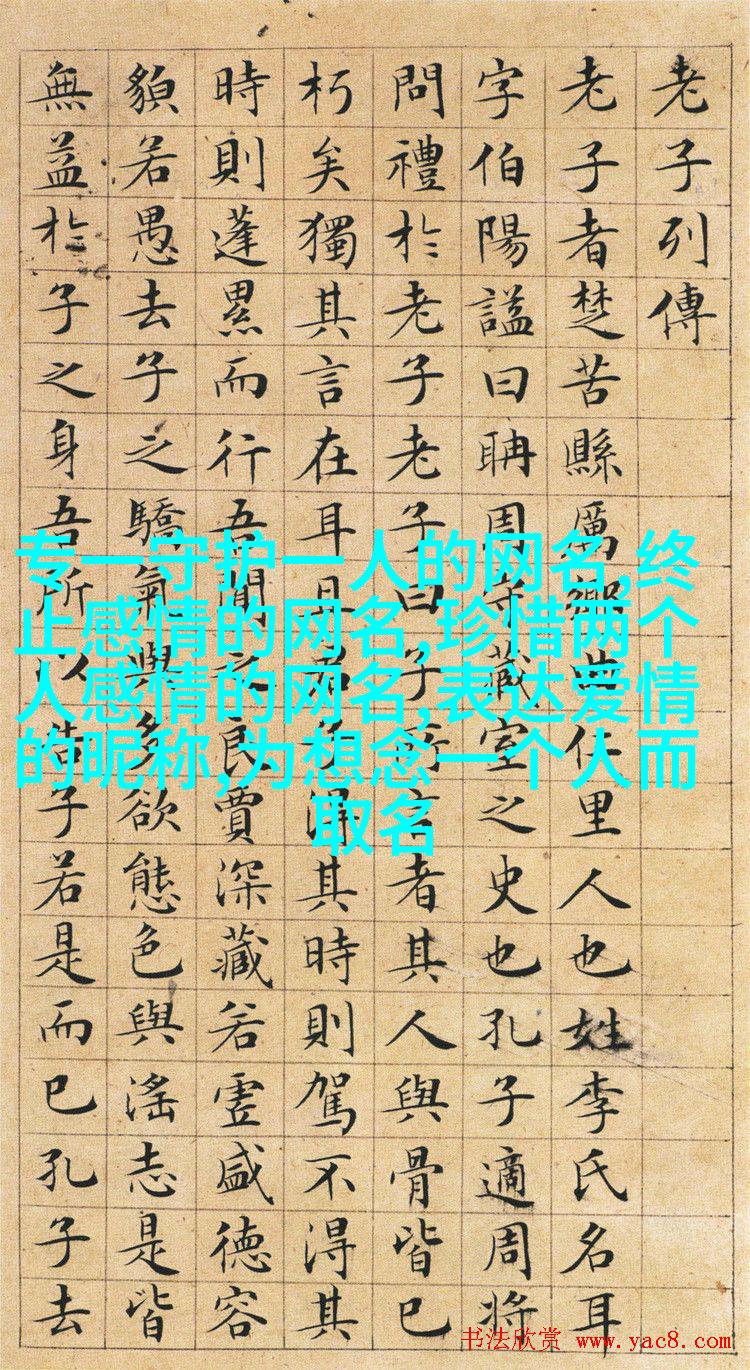 老子列傳
老子者楚苦縣厲鄉曲仁里人也姓李氏名耳
字伯陽謚曰聃周守藏室之史也孔子適周將
問禮於老子老子曰子所言者其人與骨皆已
朽矣獨其言在耳且君子得其時則駕不得其
時則蓬累而行吾聞之良賈深藏若虛盛德容
貌若愚去子之驕氣與多欲態色與淫志是皆
無益於子之身吾所以告子若是而已孔子去
专一守护一人的网名,终
止感情的网名,珍惜两个
人感情的网名,表达爱情
的昵称,为想念一个人而
取名
书法欣赏 www.yac8.com